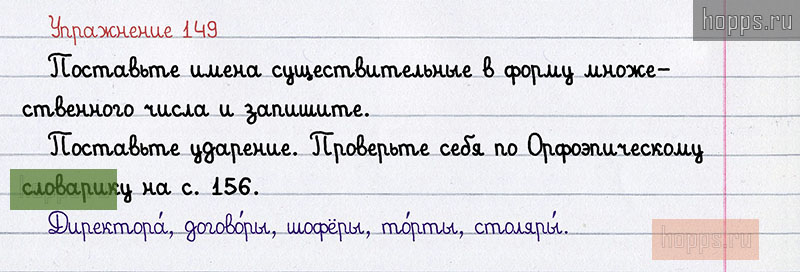 hopps.ru
Упражнение 149
Поставьте имена существительные в форму множе-
ственного числа и запишите.
Поставьте ударение. Проверьте себя по Орфоэпическому
словарику на с. 156.
Директора́, догово́ры, шофёры, то́рты, столяры́.
hopps.ru